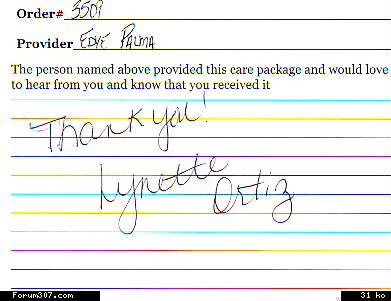 Order# 3501
Provider EDYE PALMA
The person named above provided this care package and would love
to hear from you and know that you received it
Thank you!
Lynette
Ortiz
Forum307.com
31 ko